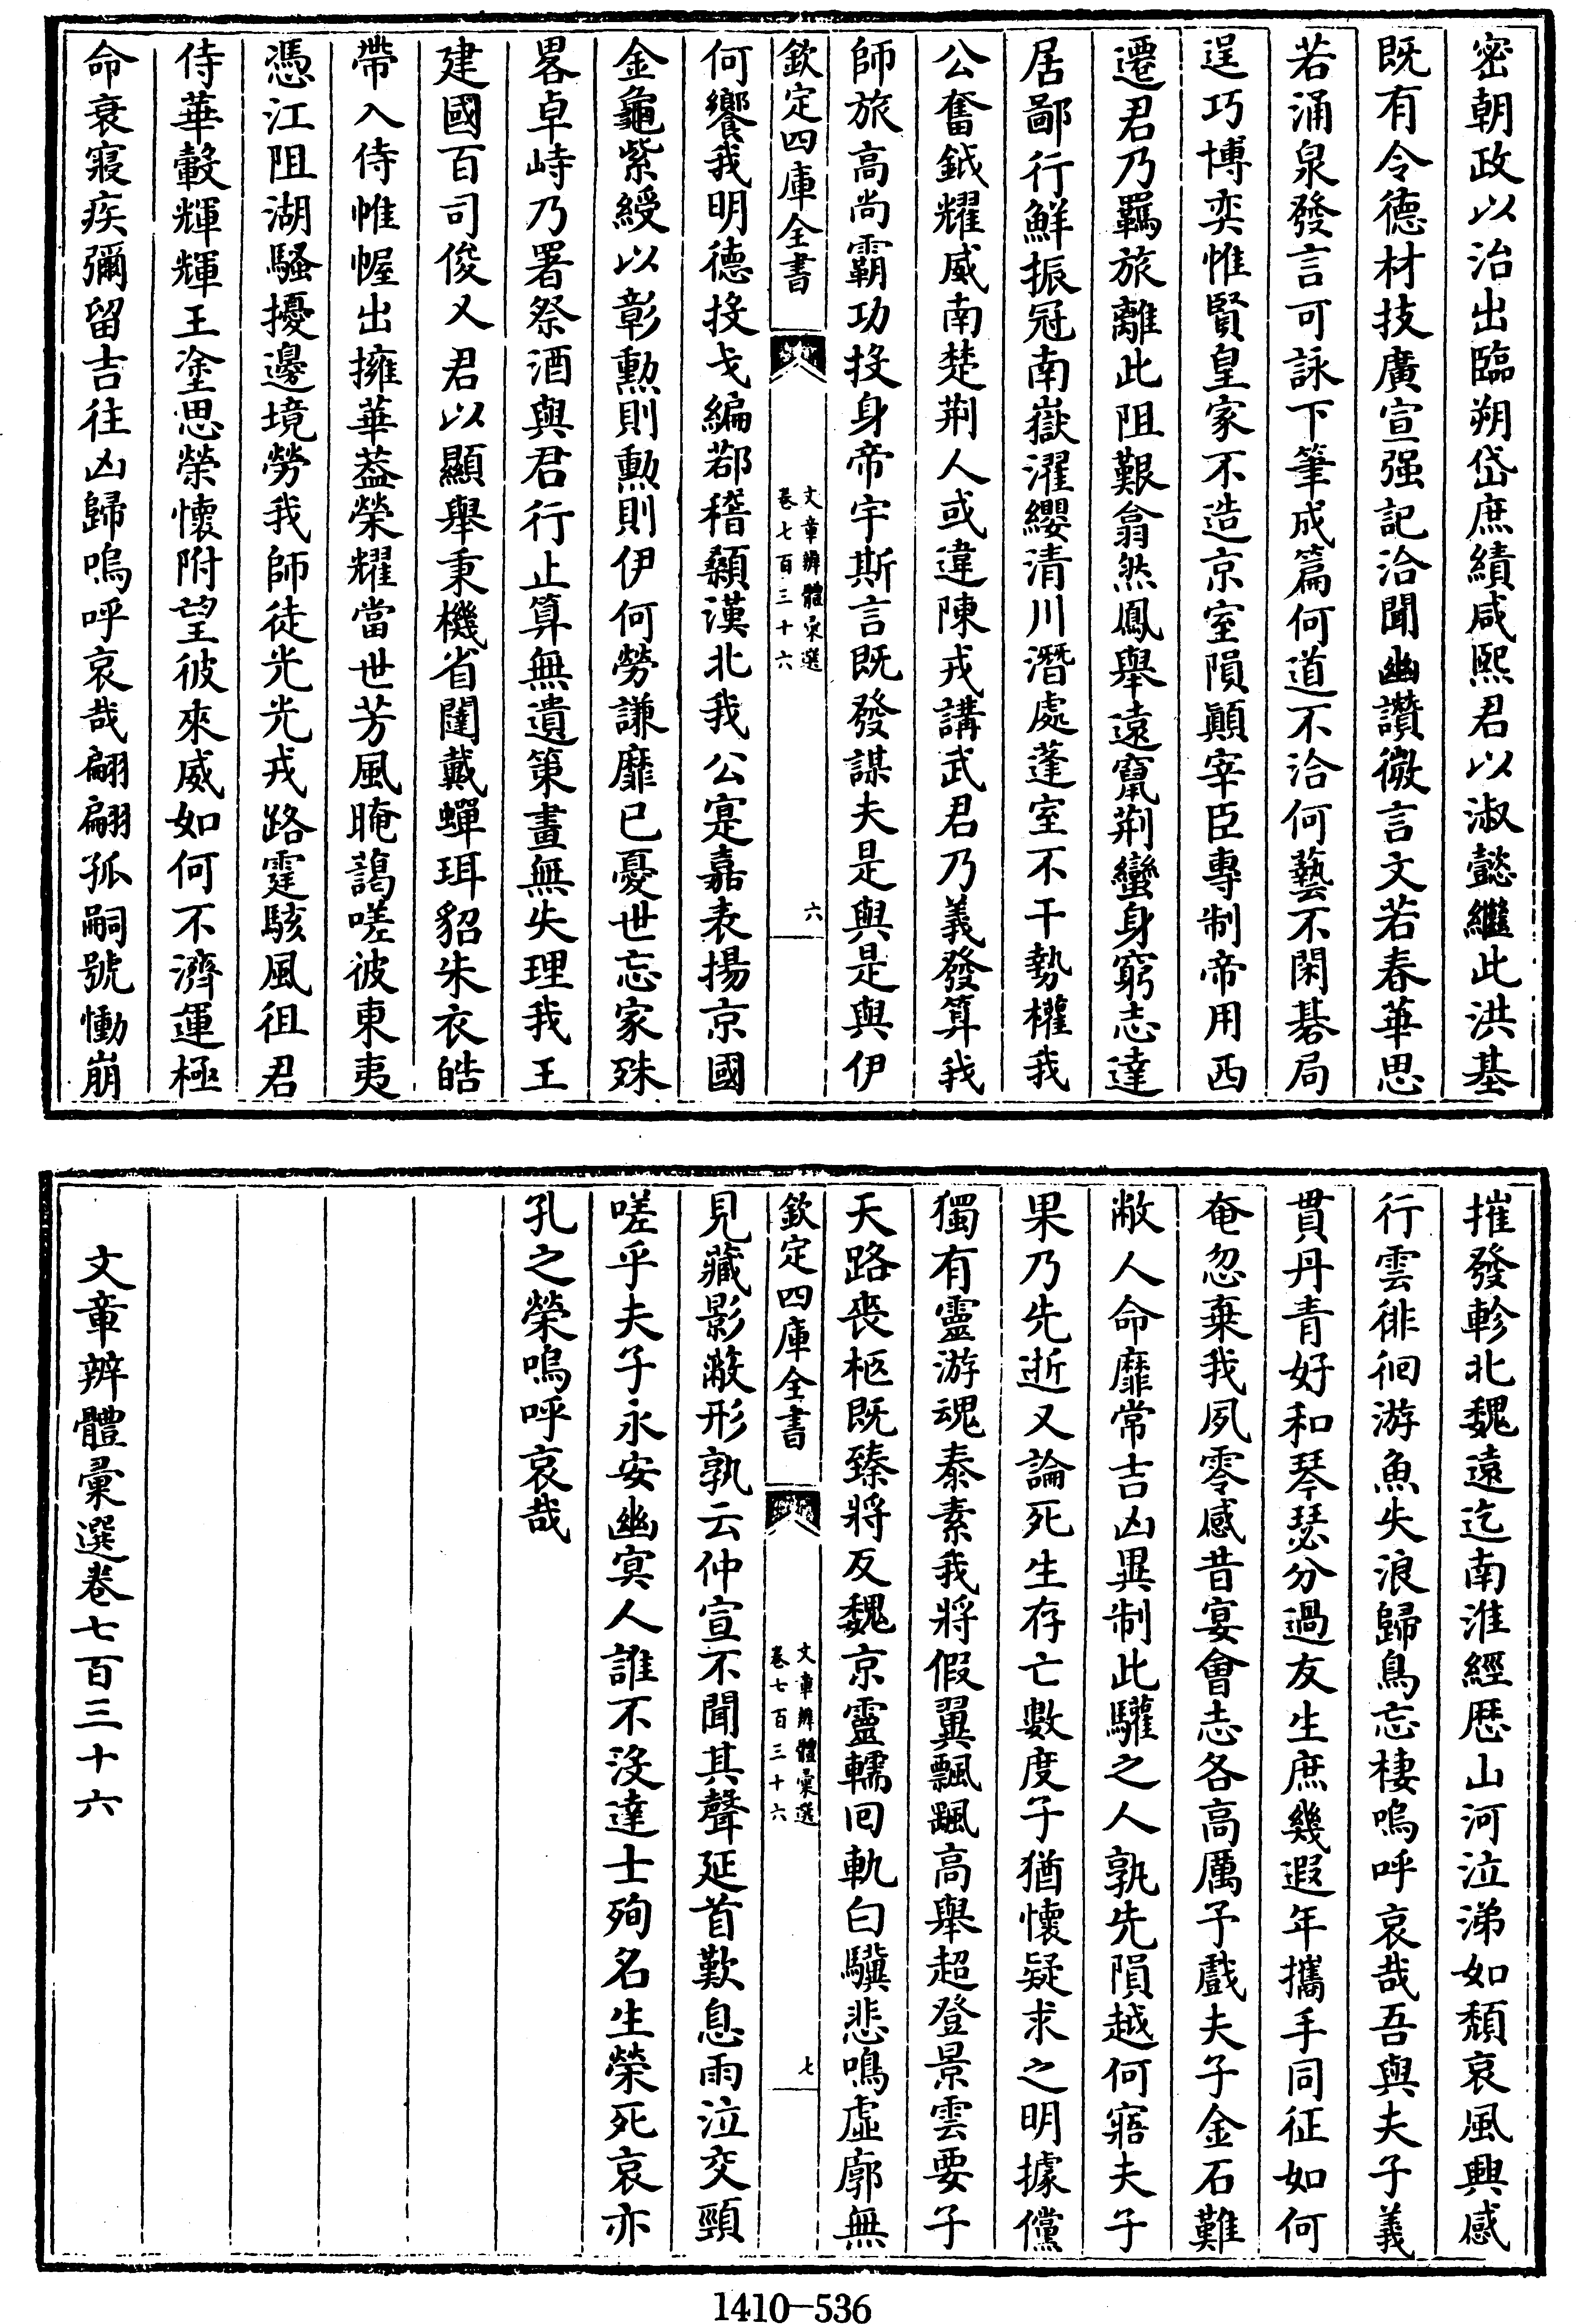 密朝政以治出臨朔岱庶績咸熙君以淑懿繼此洪基
既有令德材技廣宣强記洽聞幽讚微言文若春華思
若涌泉發言可詠下筆成篇何道不洽何藝不閑碁局
逞巧博奕惟賢皇家不造京室隕顚宰臣專制帝用西
遷君乃羈旅離此阻艱翕然鳳舉遠竄荆蠻身窮志達
居鄙行鮮振冠南嶽濯纓清川潛處蓬室不干勢權我
公奮鉞耀威南楚荆人或違陳戎講武君乃義發算我
師旅高尚霸功投身帝宇斯言既發謀夫是與是與伊
欽定四庫全書
文章辨體彚選
卷七百三十六
六
何饗我明德投戈編鄀稽顙漢北我公寔嘉表揚京國
金龜紫綬以彰勲則勲則伊何勞謙靡已憂世忘家殊
畧卓峙乃署祭酒與君行止算無遺策畫無失理我王
建國百司俊乂君以顯舉秉機省闥戴蟬珥貂朱衣皓
帶入侍帷幄出擁華葢榮耀當世芳風晻藹嗟彼東夷
憑江阻湖騷擾邊境勞我師徒光光戎路霆駭風徂君
侍華轂輝輝王塗思榮懷附望彼來威如何不濟運極
命衰寢疾彌留吉往凶歸嗚呼哀哉翩翩孤嗣號慟崩
摧發軫北魏遠迄南淮經厯山河泣涕如頹哀風興感
行雲徘徊游魚失浪歸鳥忘棲嗚呼哀哉吾與夫子義
貫丹青好和琴瑟分過友生庶幾遐年攜手同征如何
奄忽棄我夙零感昔宴會志各高厲予戲夫子金石難
敝人命靡常吉凶異制此驩之人孰先隕越何寤夫子
果乃先逝又論死生存亡數度子猶懷疑求之明據儻
獨有靈游魂泰素我將假翼飄颻高舉超登景雲要子
天路喪柩既臻將反魏京靈轜回軌白驥悲鳴虛廓無
欽定四庫全書
文章辨體彚選
卷七百三十六
七
見藏影蔽形孰云仲宣不聞其聲延首歎息雨泣交頸
嗟乎夫子永安幽冥人誰不沒達士殉名生榮死哀亦
孔之榮嗚呼哀哉
文章辨體彚選卷七百三十六
1410—536